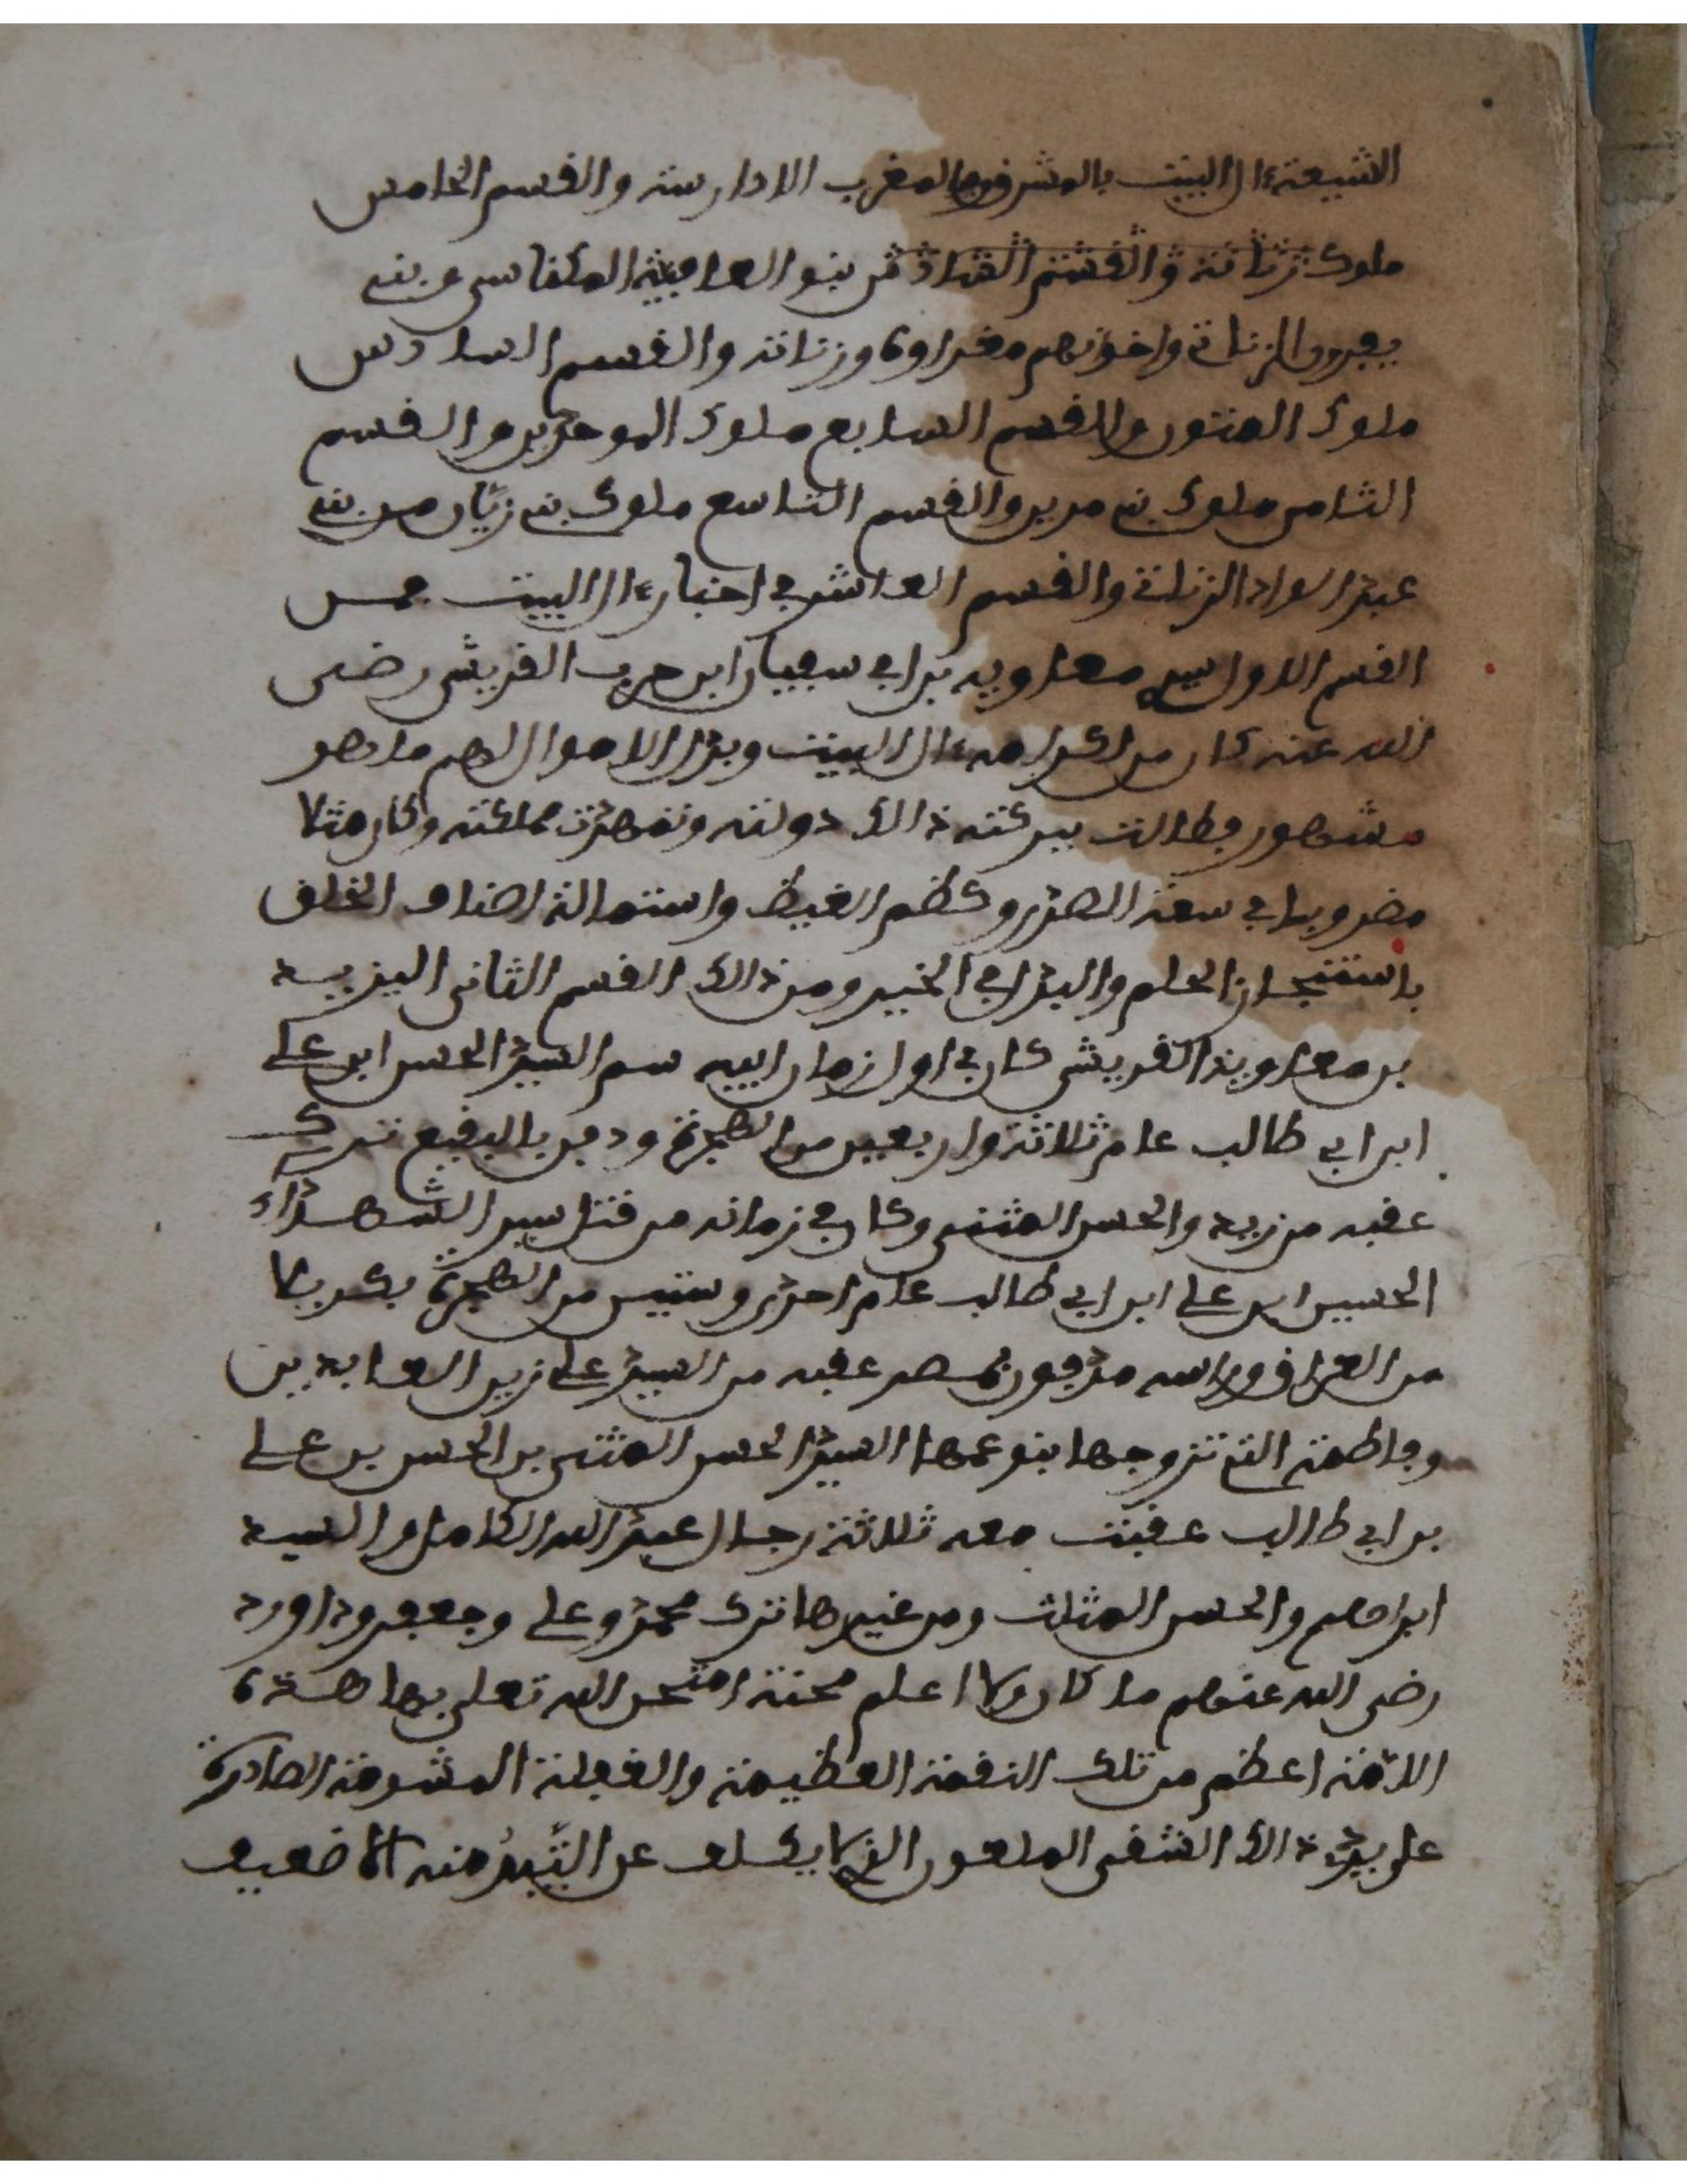 الشيعة ءال البيت بالمشرق وبالمغرب الادارسة والقسم الخامس
ملوك زناتة والقسم السادس بنو العافية المكناسي وبني
يفرن الزناتي واخوانهم مغراوة وزناتة والقسم السادس
ملوك المتون والقسم السابع ملوك الموحدين والقسم
الثامن ملوك بني مرين والقسم التاسع ملوك بني زيّان من بني
عبد الواد الزناتي والقسم العاشر في اخبار ءال البيت فمن
القسم الاول سيد معاوية بن ابي سفيان ابن حرب القريشي رضي
الله عنه كان من اكرامه ءال البيت وبذل الاموال لهم ما هو
مشهور فطالت ببركته ذالك دولته وتمهدت مملكته وكان مثلا
مضروبا في سعة الصدر وكظم الغيظ واستمالة اصناف الخلق
باستنجاز الحلم والبدل في الخير ومن ذالك القسم الثاني اليزيد
بن معاوية القريشي كان في اول زمان ابيه سم السيد الحسن ابن علي
ابن ابي طالب عام ثلاثة واربعين من الهجرة ودفن بالبقيع ترك
عقبه من زيد والحسن المثنى وكان في زمانه من قتل سيد الشهداء
الحسين ابن علي ابن ابي طالب عام احدى وستين من الهجرة بكربلا
من العراق وراسه مدفون بمصر عقبه من السيد علي زين العابدين
وفاطمة التي تزوجها بنو عمها السيد الحسن المثنى بن الحسن بن علي
بن ابي طالب عقبت معه ثلاثة رجال عبد الله الكامل والسيد
ابراهيم والحسن المثلث ومن غيرها ترك محمد وعلي وجعفر وداورد
رضي الله عنهم ما كان ولا اعلم محنة امتحن الله تعلى بها هذه
الامة اعظم من تلك النقمة العظيمة والفعلة المشومة الصادرة
على يد ذالك الشقي الملعون الذي لا يكسل عن التبرء منه الا ضعيف